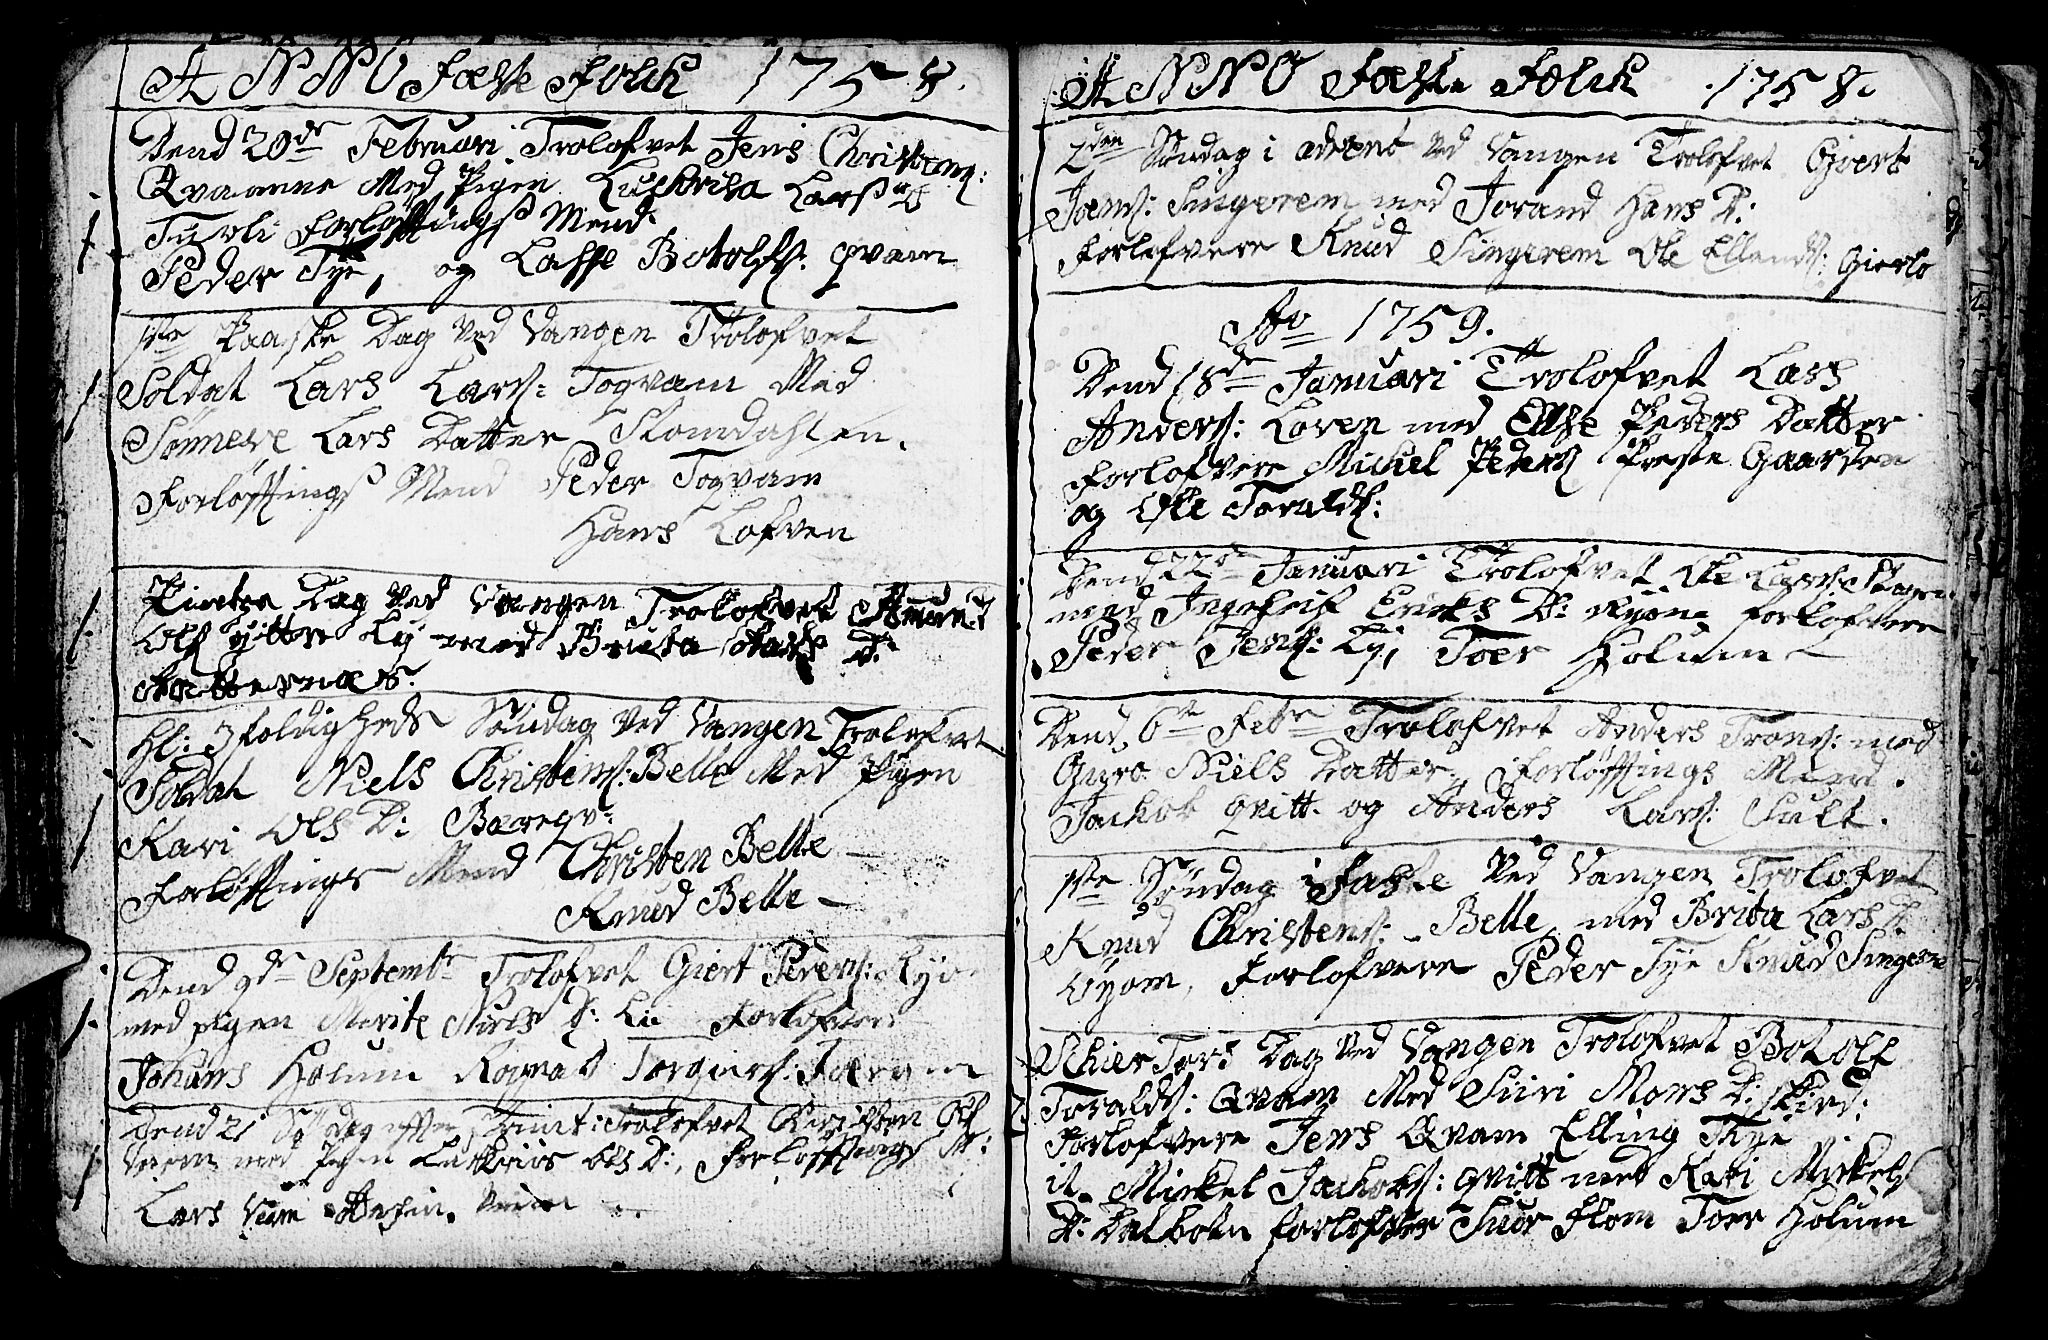 ANNO Fæste Folck 1758.
Dend 20de Februari Trolofvet Jens Christens:
Qvamme Med Pigen Luckrisa Larsd
Turli Forløftings Mend
Peder Tye, og Lasse Botolfs: Qvam
1ste Paaske Dag Ved Vangen Trolofvet
Soldat Lars Lars: Togvam Med
Sønneve Lars Datter Flomdahlen.
Forløftings Mend Peder Togvam
Hans Lofven
Pintse Dag Ved Vangen Trolofvet Amund
Ols yttre Ly med Brita Lars D:
Hl: 3foldigheds Søndag Ved Vangen Trolofvet
Soldat Niels Christens: Belle Med Pigen
Kari Ols D: Bæregv:
Forløftings Mend Christen Belle
Knud Belle
Dend 9de Septembr Trolofvet Giert Peders: Ryo
med pigen Marite Niels D: Lie Forlofvere
Johans Holum Rognald Torgiers:
Dend 21 Sødag efter Trinit: Trolofvet Christen Ols
med Pigen Ols D: Forløftings M:
Lars Vim
ANNO Fæste Folck 1758.
2den Søndag i advent Ved Vangen Trolofvet Giert
Joens: Singerem med Jorand Hans D:
Forlofvere Knud Singerem Ole Ellends: Gierlo
Ao 1759.
Dend 18de Januari Trolofvet Lars
Anders: Loven med Else Peders Datter
Forlofvere Michel Peders Preste Gaarden
og Ole Toralds:
Dend 22de Januari Trolofvet Ole Lars:
med Ingeleif Ericks D: Ryom forlofvere
Peder Jens: Ly, Toer Holum
Dend 6te Febr Trolofvet Anders Trons: med
Guro Niels Datter, Forløftings Mend.
Jachob Qvitt og Anders Lars: Sult.
1ste Søndag i Faste Ved Vangen Trolofvet
Knud Christens: Belle, med Brita Lars D:
Uyom, Forlofvere Peder Tye Knud Singerem
Schier Tors Dag Ved Vangen Trolofvet Botolf
Toralds: Qvam Med Siri Mons D: Skierd:
Forlofvere Jens Qvam Elling Tye
it. Mickel Jachobs: Qvitt med Kari Mickels
D: Dalbotn forlofvere Siur Flom Toer Holum